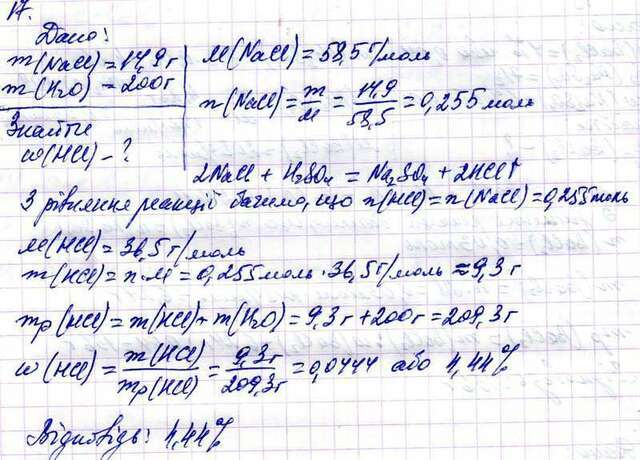 17.
Дано:
m(NaCl) = 14,9 г
m(H2O) = 200 г
Знайти
ω(HCl) - ?
M(NaCl) = 58,5 г/моль
n(NaCl) = m/M = 14,9/58,5 = 0,255 моль
2NaCl + H2SO4 = Na2SO4 + 2HCl↑
З рівняння реакції бачимо, що n(HCl) = n(NaCl) = 0,255 моль
M(HCl) = 36,5 г/моль
m(HCl) = n·M = 0,255 моль · 36,5 г/моль ≈ 9,3 г
mр(HCl) = m(HCl) + m(H2O) = 9,3 г + 200 г = 209,3 г
ω(HCl) = m(HCl)/mр(HCl) = 9,3 г/209,3 г = 0,0444 або 4,44%
Відповідь: 4,44%